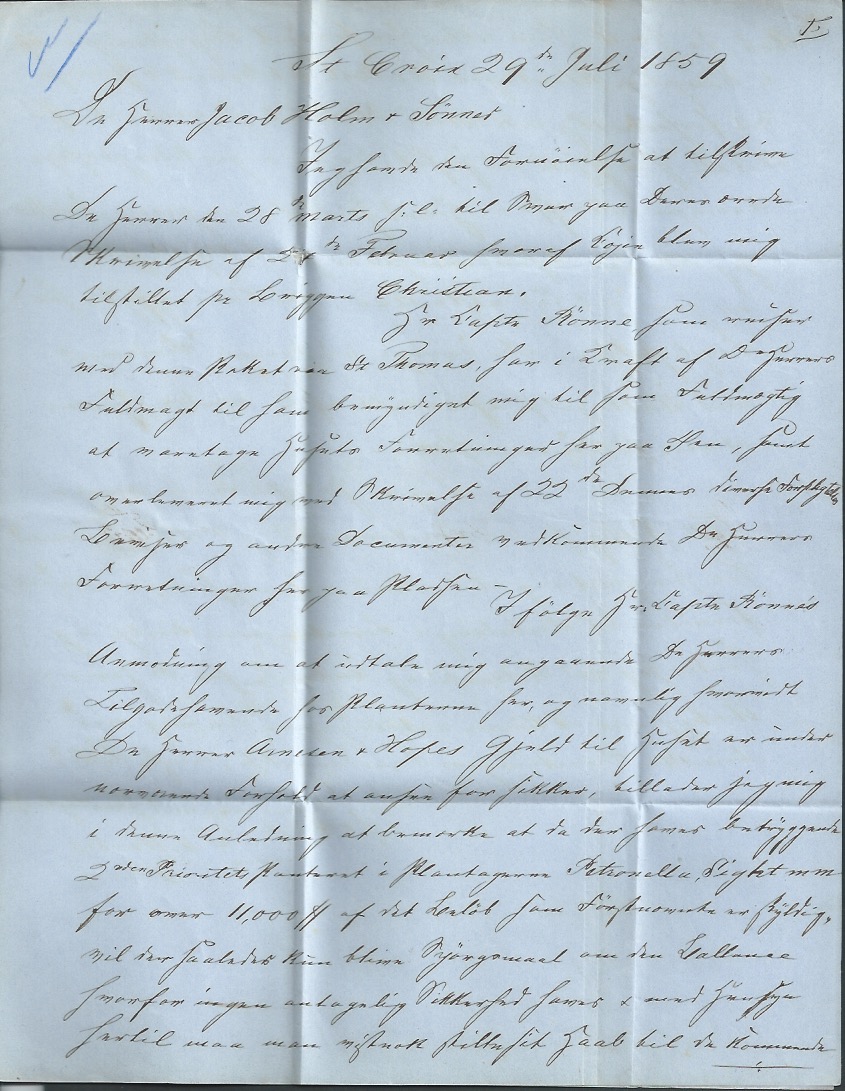 I.
St Croix 29de Juli 1859
De Herrer Jacob Holm & Sönner
Jeg havde den Fornöielse at tilskrive
De Herrer den 28de Marts s: l: til Svar paa Deres ærede
Skrivelse af de Februar hvoraf Copie blev mig
tilstillet pr Briggen Christian.
Hr Capt Rönne, som reiser
med denne Paket via St Thomas, har i Kraft af De Herrers
Fuldmagt til ham bemyndiget mig til som Fuldmægtig
at varetage Husets Forretninger her paa Öen, samt
overleveret mig ved Skrivelse af 22de Dennes diverse Forskrivelser
Beviser og andre Documenter vedkommende De Herrers
Forretninger her paa Pladsen –
I fölge Hr Capt Rönnes
Anmodning om at udtale mig angaaende De Herrers
Tilgodehavende hos Planterne her, og navnlig hvorvidt
De Herrer Arnesen & Hopes Gjeld til Huset er under
nærværende Forhold at ansee for sikker, tillader jeg mig
i denne Anledning at bemærke at da der haves betryggende
2den Prioritets Panteret i Plantagerne Petronella, Sight mm
for over 11,000 $ af det Belöb som Förstnævnte er skyldig,
vil der saaledes kun blive Spörgsmaal om den Ballance
hvorfor ingen antagelig Sikkerhed haves & med Hensyn
hertil maa man vistnok stille sit Haab til de kommende